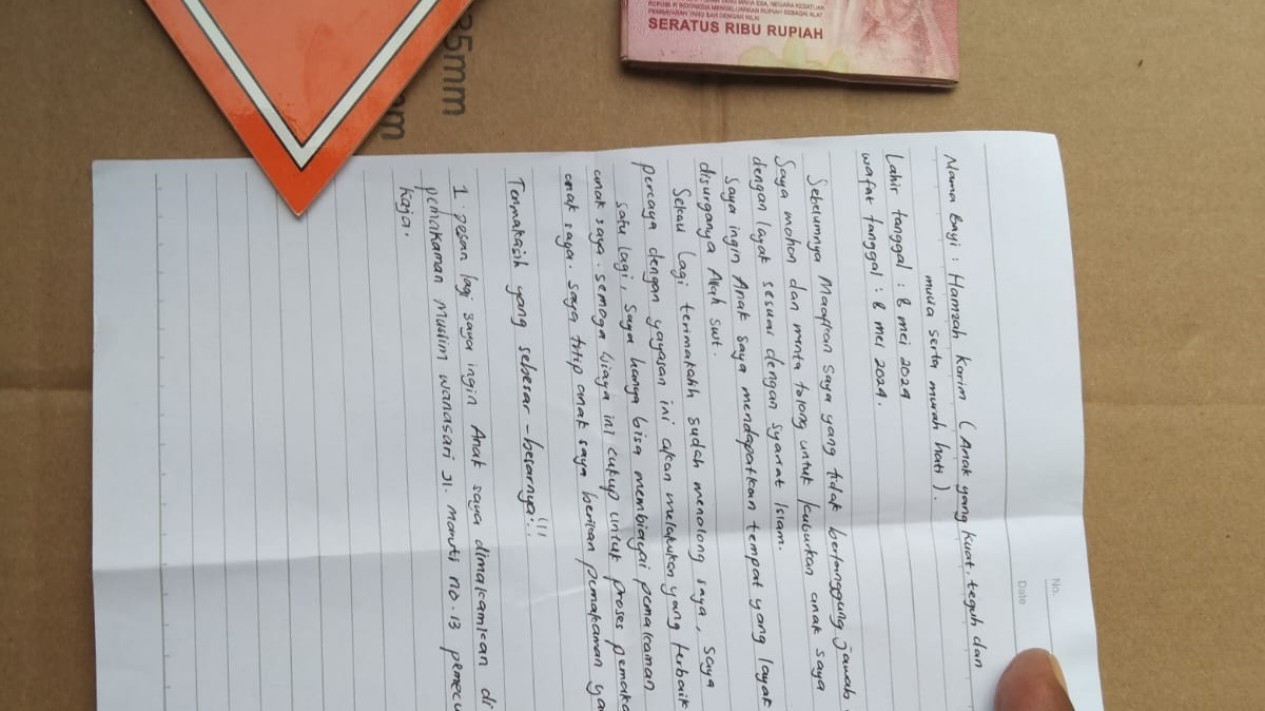 35mm
REPUBLIK INDONESIA MENGELUARKAN RUPIAH SEBAGAI ALAT
PEMBAYARAN YANG SAH DENGAN NILAI
SERATUS RIBU RUPIAH
No.
Date
Nama Bayi : Hamzah Karim (Anak yang kuat, teguh dan
mulia serta murah hati).
Lahir tanggal : 8 mei 2024
wafat tanggal : 8 mei 2024.
Sebelumnya Maafkan saya yang tidak bertanggung jawab
Saya mohon dan minta tolong untuk kuburkan anak saya
dengan layak sesuai dengan syariat Islam.
Saya ingin Anak saya mendapatkan tempat yang layak
disurganya Allah swt.
Sekali lagi terimakasih sudah menolong saya, saya
percaya dengan yayasan ini akan melakukan yang terbaik
satu lagi, saya hanya bisa membiayai pemakaman
anak saya. semoga biaya ini cukup untuk proses pemaka
anak saya. saya titip anak saya berikan pemakaman ya
Terimakasih yang sebesar-besarnya!!!
1. pesan lagi saya ingin Anak saya dimakamkan di
pemakaman muslim wanasari Jl. Maruti no.13 pemecu
Kaja.